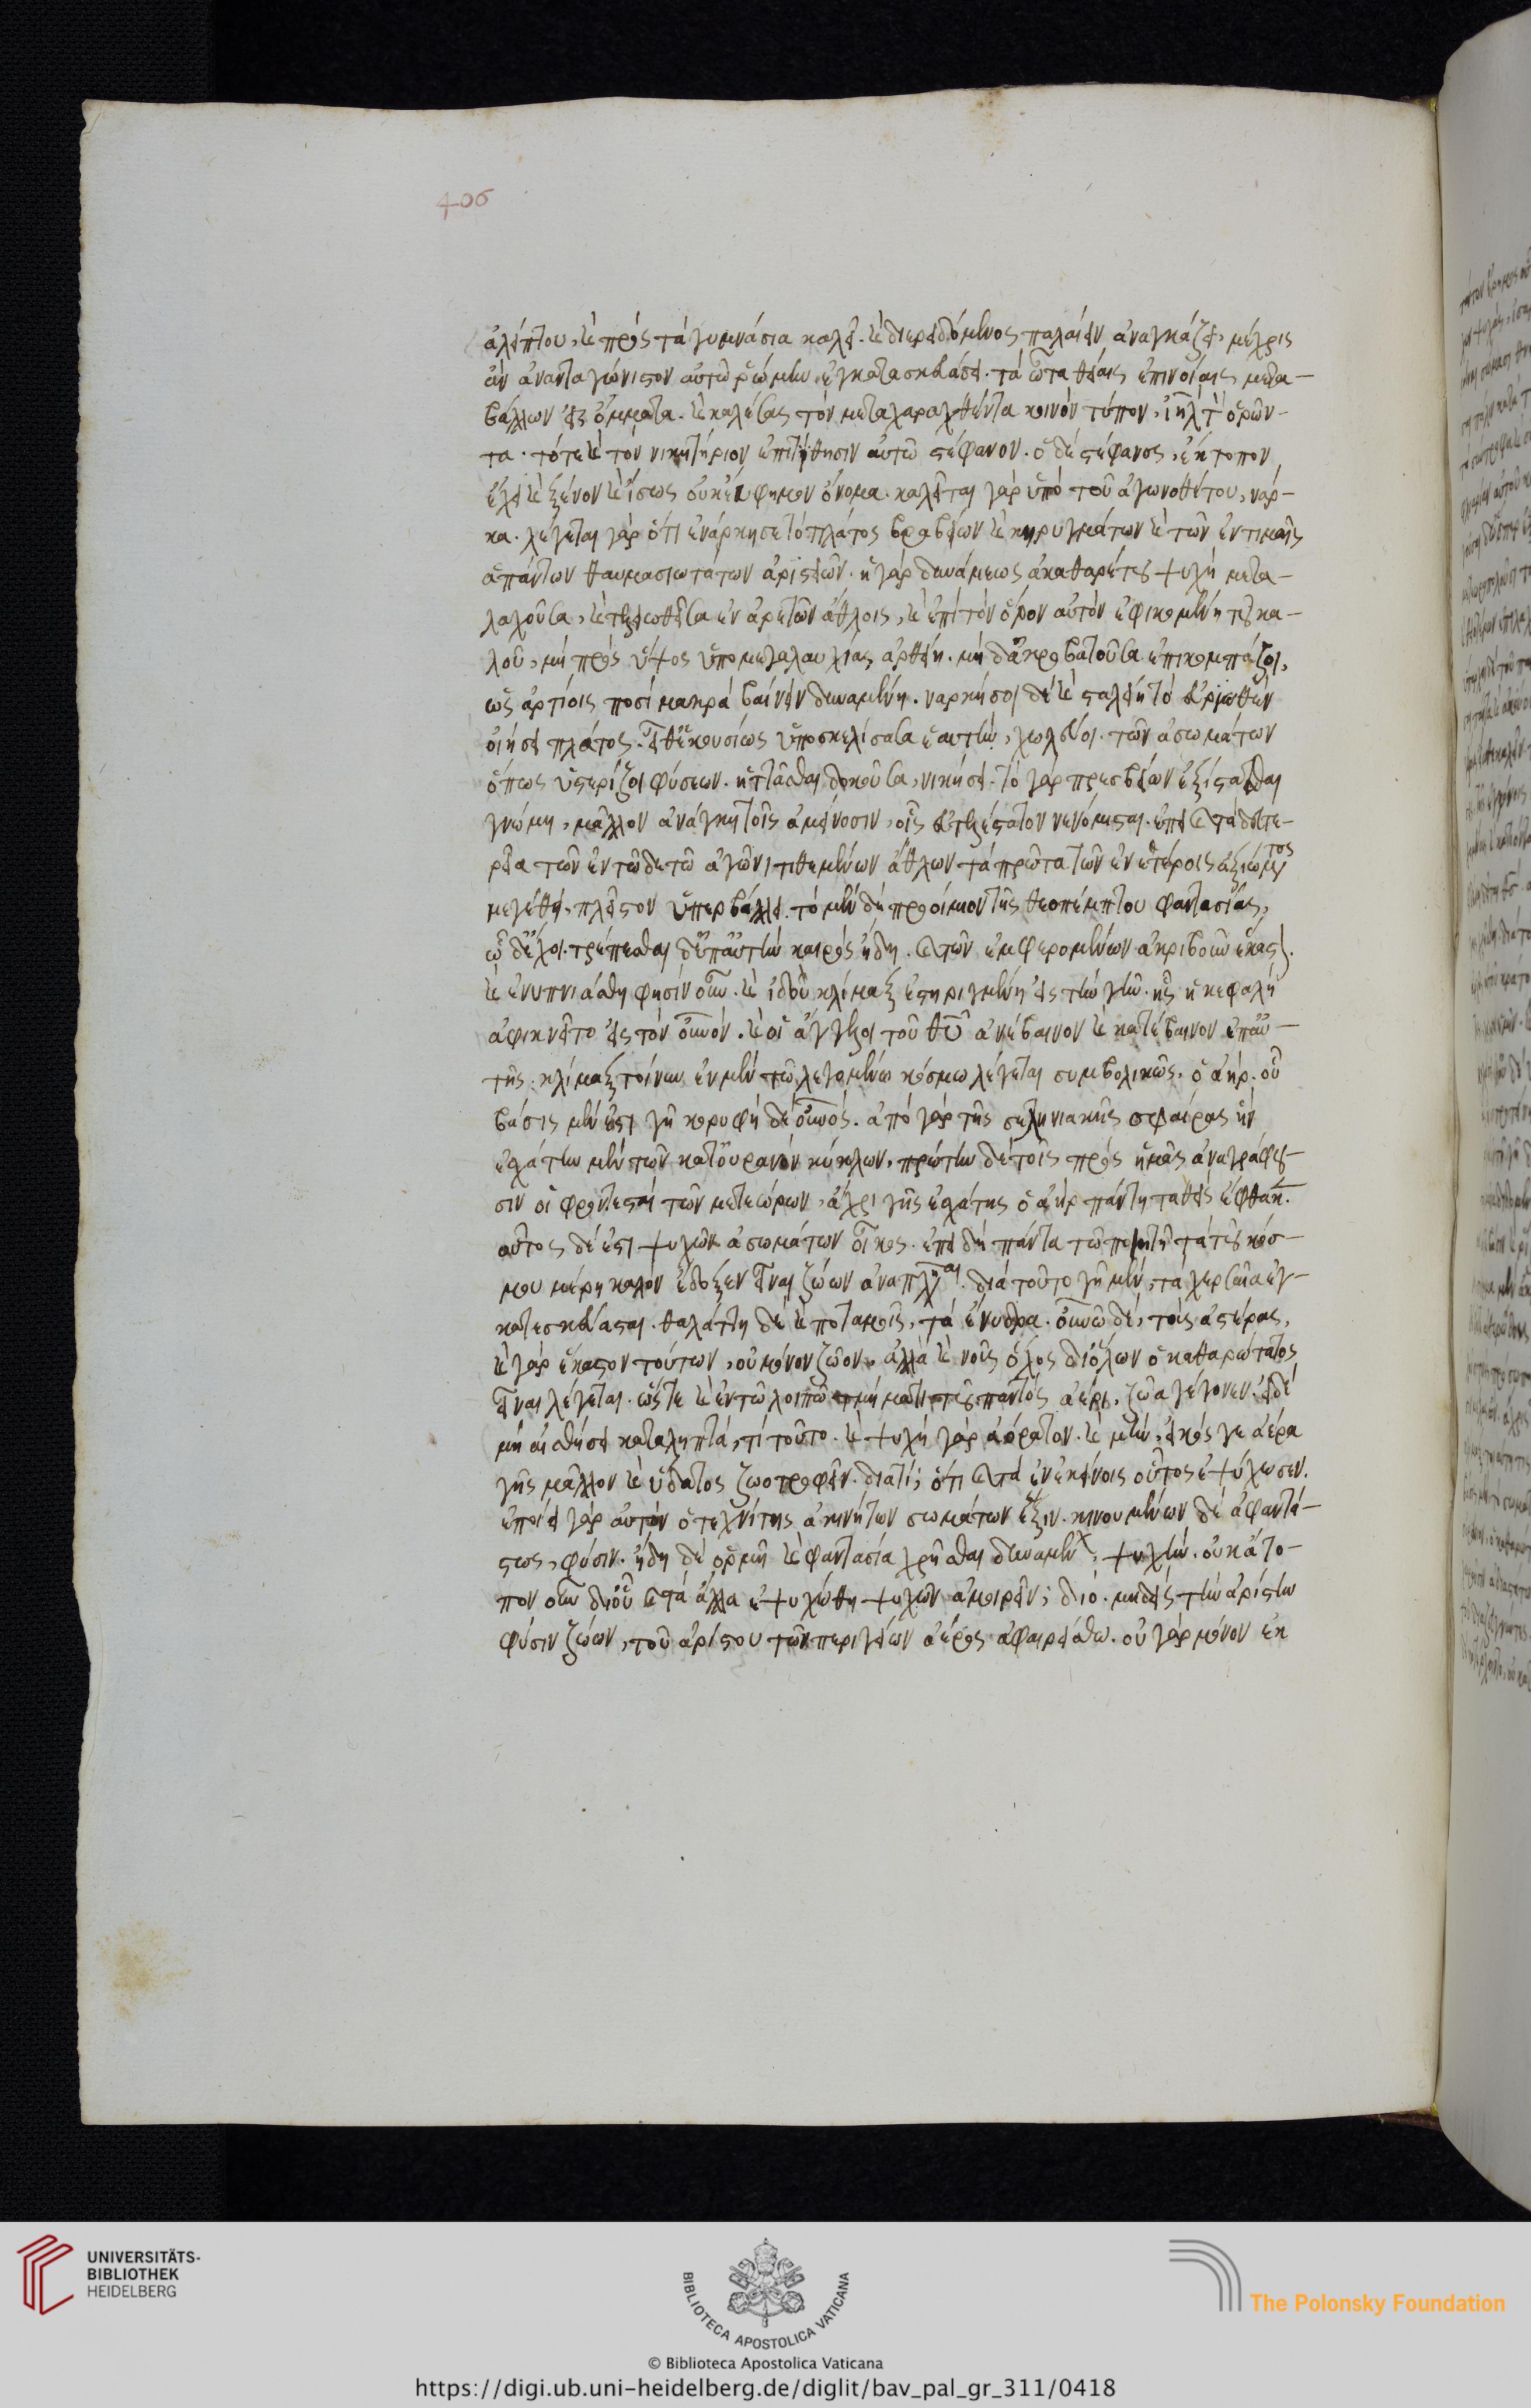 406
ἀλείπτου, καὶ πρὸς τὰ γυμνάσια καλεῖ. καὶ διερειδόμενος παλαίειν ἀναγκάζει, μέχρις
ἂν ἀνανταγώνιστον αὐτῷ ῥώμην ἐγκατασκευάσει. τὰ ὦτα θείαις ἐπινοίαις μετα-
βάλλων εἰς ὄμματα. καὶ καλέσας τὸν μεταχαραχθέντα κοινὸν τύπον, ἰηλ τὸν ὁρῶν-
τα. τότε καὶ τὸν νικητήριον ἐπιτίθησιν αὐτῷ στέφανον. ὁ δὲ στέφανος, ἔκτοπον
ἔχει καὶ ξένον καὶ ἴσως οὐκ εὔφημον ὄνομα. καλεῖται γὰρ ὑπὸ τοῦ ἀγωνοθέτου, νάρ-
κα. λέγεται γὰρ ὅτι ἐνάρκησε τὸ πλάτος βραβείων καὶ κηρυγμάτων καὶ τῶν ἐν τιμαῖς
ἁπάντων θαυμασιωτάτων ἀριστείων. ἡ γὰρ δυνάμεως ἀκαθαιρέτου ψυχὴ μετα-
λαχοῦσα, καὶ τελειωθεῖσα ἐν ἀρετῶν ἄθλοις, καὶ ἐπὶ τὸν ὅρον αὐτὸν ἐφικομένη τοῦ κα-
λοῦ, μὴ πρὸς ὕψος ὑπὸ μεγαλαυχίας ἀρθείη. μὴ δ' ἀκροβατοῦσα ἐπικομπάζοι,
ὡς ἀρτίοις ποσὶ μακρὰ βαίνειν δυναμένη. ναρκήσοι δὲ καὶ σταλείη τὸ εὐρυνθὲν
οἰήσει πλάτος. εἶθ' ἑκουσίως ὑποσκελίσασα ἑαυτὴν, χωλεύοι. τῶν ἀσωμάτων
ὅπως ὑστερίζοι φύσεων. ἡττᾶσθαι δοκοῦσα, νικήσει. τὸ γὰρ πρεσβείων ἐξίστασθαι
γνώμῃ, μᾶλλον ἀνάγκῃ τοῖς ἀμείνοσιν, οἷς εὐτελέστατον νενόμισται. ἐπεὶ καὶ τὰ δευτε-
ρεῖα τῶν ἐν τῷδε τῷ ἀγῶνι τιθεμένων ἄθλων τὰ πρῶτα τῶν ἐν ἑτέροις ἀξιώματος
μεγέθει, πλεῖστον ὑπερβάλλει. τὸ μὲν δὴ προοίμιον τῆς θεοπέμπτου φαντασίας,
ὧδ' ἔχοι. τρέπεσθαι δ' ἐπ' αὐτὴν καιρὸς ἤδη. καὶ τῶν ἐμφερομένων ἀκριβοῦν ἕκαστον.
καὶ ἐνυπνιάσθη φησὶν οὖν. καὶ ἰδοὺ κλίμαξ ἐστηριγμένη εἰς τὴν γῆν. ἧς ἡ κεφαλὴ
ἀφικνεῖτο εἰς τὸν οὐνόν. καὶ οἱ ἄγγελοι τοῦ θυ ἀνέβαινον καὶ κατέβαινον ἐπ' αὐ-
τῆς. κλίμαξ τοίνυν ἐν μὲν τῷ λεγομένῳ κόσμῳ λέγεται συμβολικῶς. ὁ ἀήρ. οὗ
βάσις μέν ἐστι γῆ κορυφὴ δὲ οὐνός. ἀπὸ γὰρ τῆς σεληνιακῆς σφαίρας ἣν
ἐσχάτην μὲν τῶν κατ' οὐρανὸν κύκλων, πρώτην δὲ τοῖς πρὸς ἡμᾶς ἀναγράφου-
σιν οἱ φροντισταὶ τῶν μετεώρων, ἄχρι γῆς ἐσχάτης ὁ ἀὴρ πάντη ταθεὶς ἔφθακεν.
οὗτος δέ ἐστι ψυχῶν ἀσωμάτων οἶκος. ἐπειδὴ πάντα τῷ ποιητῇ τὰ τοῦ κόσ-
μου μέρη καλὸν ἔδοξεν εἶναι ζώων ἀναπλῆσαι. διὰ τοῦτο γῇ μὲν, τὰ χερσαῖα ἐγ-
κατεσκεύασται. θαλάττῃ δὲ καὶ ποταμοῖς, τὰ ἔνυδρα. οὐνῷ δὲ, τοὺς ἀστέρας,
καὶ γὰρ ἕκαστον τούτων, οὐ μόνον ζῷον. ἀλλὰ καὶ νοῦς ὅλος δι' ὅλων ὁ καθαρώτατος
εἶναι λέγεται. ὥστε καὶ ἐν τῷ λοιπῷ τμήματι τοῦ παντὸς ἀέρι, ζῷα γέγονεν. εἰ δὲ
μὴ αἰσθήσει καταληπτὰ, τί τοῦτο. καὶ ψυχὴ γὰρ ἀόρατον. καὶ μὴν, εἰκός γε ἀέρα
γῆς μᾶλλον καὶ ὕδατος ζωοτροφεῖν. διατί; ὅτι καὶ τὰ ἐν ἐκείνοις οὗτος ἐψύχωσεν.
ἐποίει γὰρ αὐτὸν ὁ τεχνίτης ἀκινήτων σωμάτων ἕξιν. κινουμένων δὲ ἀφαντά-
στως, φύσιν. ἤδη δὲ ὁρμῇ καὶ φαντασίᾳ χρῆσθαι δυναμένων, ψυχήν. οὐκ ἄτο-
πον οὖν δι' οὗ καὶ τὰ ἄλλα ἐψυχώθη ψυχῶν ἀμοιρεῖν; διὸ. μηδεὶς τὴν ἀρίστην
φύσιν ζώων, τοῦ ἀρίστου τῶν περιγείων ἀέρος ἀφαιρείσθω. οὐ γὰρ μόνον ἐκ
UNIVERSITÄTS-
BIBLIOTHEK
HEIDELBERG
BIBLIOTECA APOSTOLICA VATICANA
The Polonsky Foundation
© Biblioteca Apostolica Vaticana
https://digi.ub.uni-heidelberg.de/diglit/bav_pal_gr_311/0418